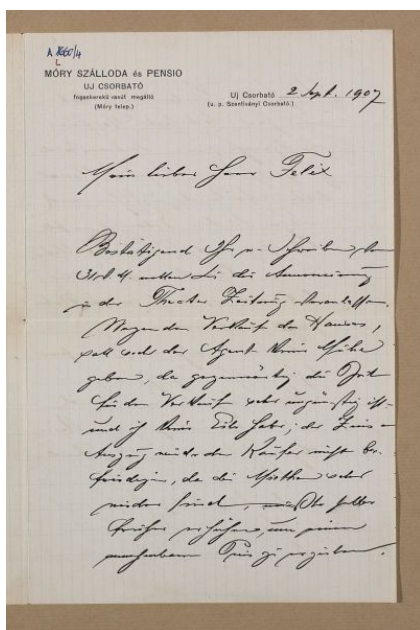 A 8660/4
L
MÓRY SZÁLLODA és PENSIO
UJ CSORBATÓ
fogaskerekü vasút megálló
(Móry telep.)
Uj Csorbató 2 Sept. 1907
(u. p. Szentiványi Csorbató.)
Mein lieber Herr Felix
Bestätigend Ihr Schreiben vom
31/8 wollen Sie die Annoncierung
in der Theater Zeitung veranlassen.
Wegen dem Verkaufe des Hauses,
soll sich der Agent keine Mühe
geben, da gegenwärtig die Zeit
für den Verkauf sehr ungünstig ist
und ich keine Eile habe; der Zins
Auszug wird den Käufer nicht be-
friedigen, da die Miethen sehr
nieder sind, müßte selbe
früher erhöhen, um einen
annehmbaren Preis zu erzielen.